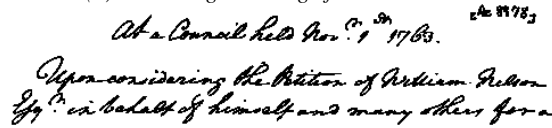 At a Council held Nov.r 1st 1763.
Upon considering the Petition of William Nelson
Esq.r in behalf of himself and many others for a